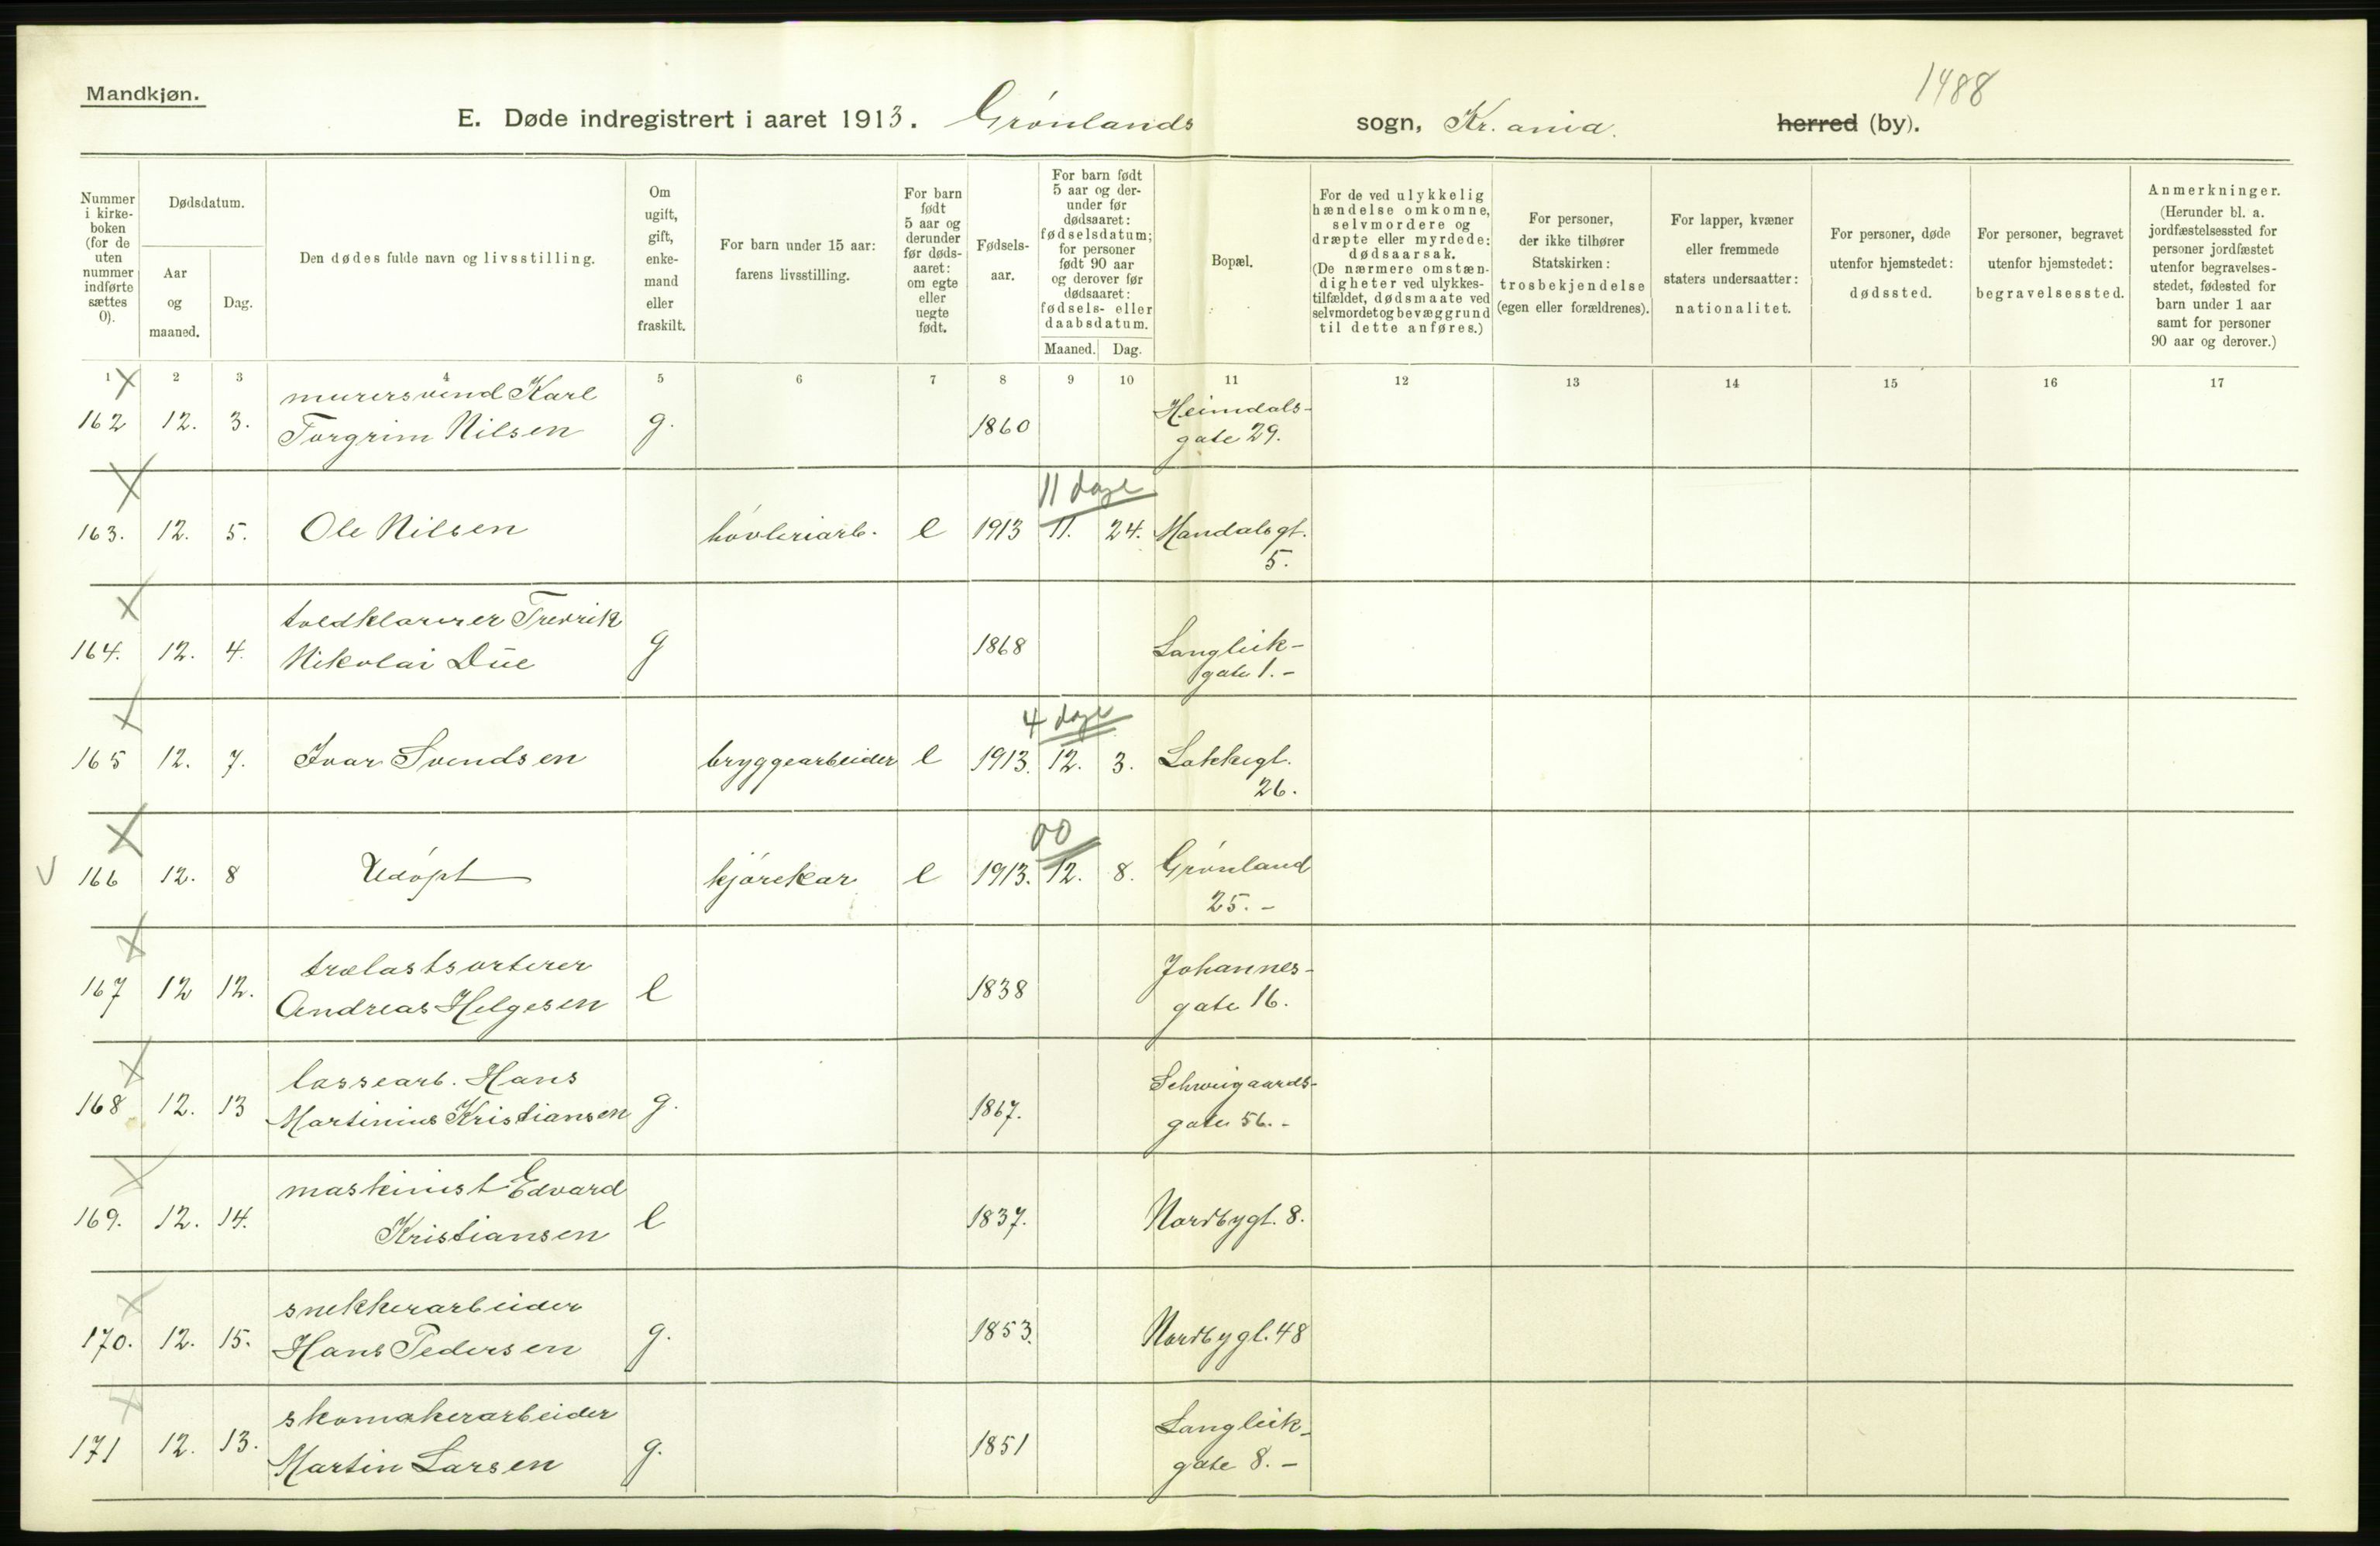 1488
Mandkjøn.
E. Døde indregistrert i aaret 1913. Grønlands sogn, Kr.ania. herred (by).
Nummer i kirkeboken (for de uten nummer indførte sættes 0).
Dødsdatum.
Aar og maaned.
Dag.
Den dødes fulde navn og livsstilling.
Om ugift, gift, enkemand eller fraskilt.
For barn under 15 aar: farens livsstilling.
For barn født 5 aar og derunder før dødsaaret: om egte eller uegte født.
Fødselsaar.
For barn født 5 aar og derunder før dødsaaret: fødselsdatum; for personer født 90 aar og derover før dødsaaret: fødsels- eller daabsdatum.
Maaned. Dag.
Bopæl.
For de ved ulykkelig hændelse omkomne, selvmordere og dræpte eller myrdede: dødsaarsak. (De nærmere omstændigheter ved ulykkestilfældet, dødsmaate ved selvmordet og bevæggrund til dette anføres.)
For personer, der ikke tilhører Statskirken: trosbekjendelse (egen eller forældrenes).
For lapper, kvæner eller fremmede staters undersaatter: nationalitet.
For personer, døde utenfor hjemstedet: dødssted.
For personer, begravet utenfor hjemstedet: begravelsessted.
Anmerkninger. (Herunder bl. a. jordfæstelsessted for personer jordfæstet utenfor begravelsesstedet, fødested for barn under 1 aar samt for personer 90 aar og derover.)
1 2 3 4 5 6 7 8 9 10 11 12 13 14 15 16 17
X murersvend Karl Heimdals-
162 12. 3. Torgrim Nilsen g. 1860 gate 29.
X 11 dage
163. 12. 5. Ole Nilsen høvleriarb. e 1913 11. 24. Mandalsgt.
5.
X toldklarerer Fredrik
164. 12. 4. Nikolai Düe g 1868 Langleik-
gate 1. -
X 4 dage
165 12. 7. Ivar Svendsen bryggearbeider e 1913. 12. 3. Lakkegt.
26.
X 00
V 166 12. 8 Udøpt kjørekar e 1913. 12. 8. Grønland
25. -
X trælastsorterer Johannes-
167 12 12. Andreas Helgesen e 1838 gate 16.
X lossearb. Hans Schweigaards-
168 12. 13 Martinius Kristiansen g. 1867. gate 56. -
X maskinist Edvard
169. 12. 14. Kristiansen e 1837. Nordbygt. 8.
X snekkerarbeider
170. 12. 15. Hans Pedersen g. 1853. Nordbygt. 48
X skomakerarbeider Langleik-
171 12. 13. Martin Larsen g. 1851 gate 8. -